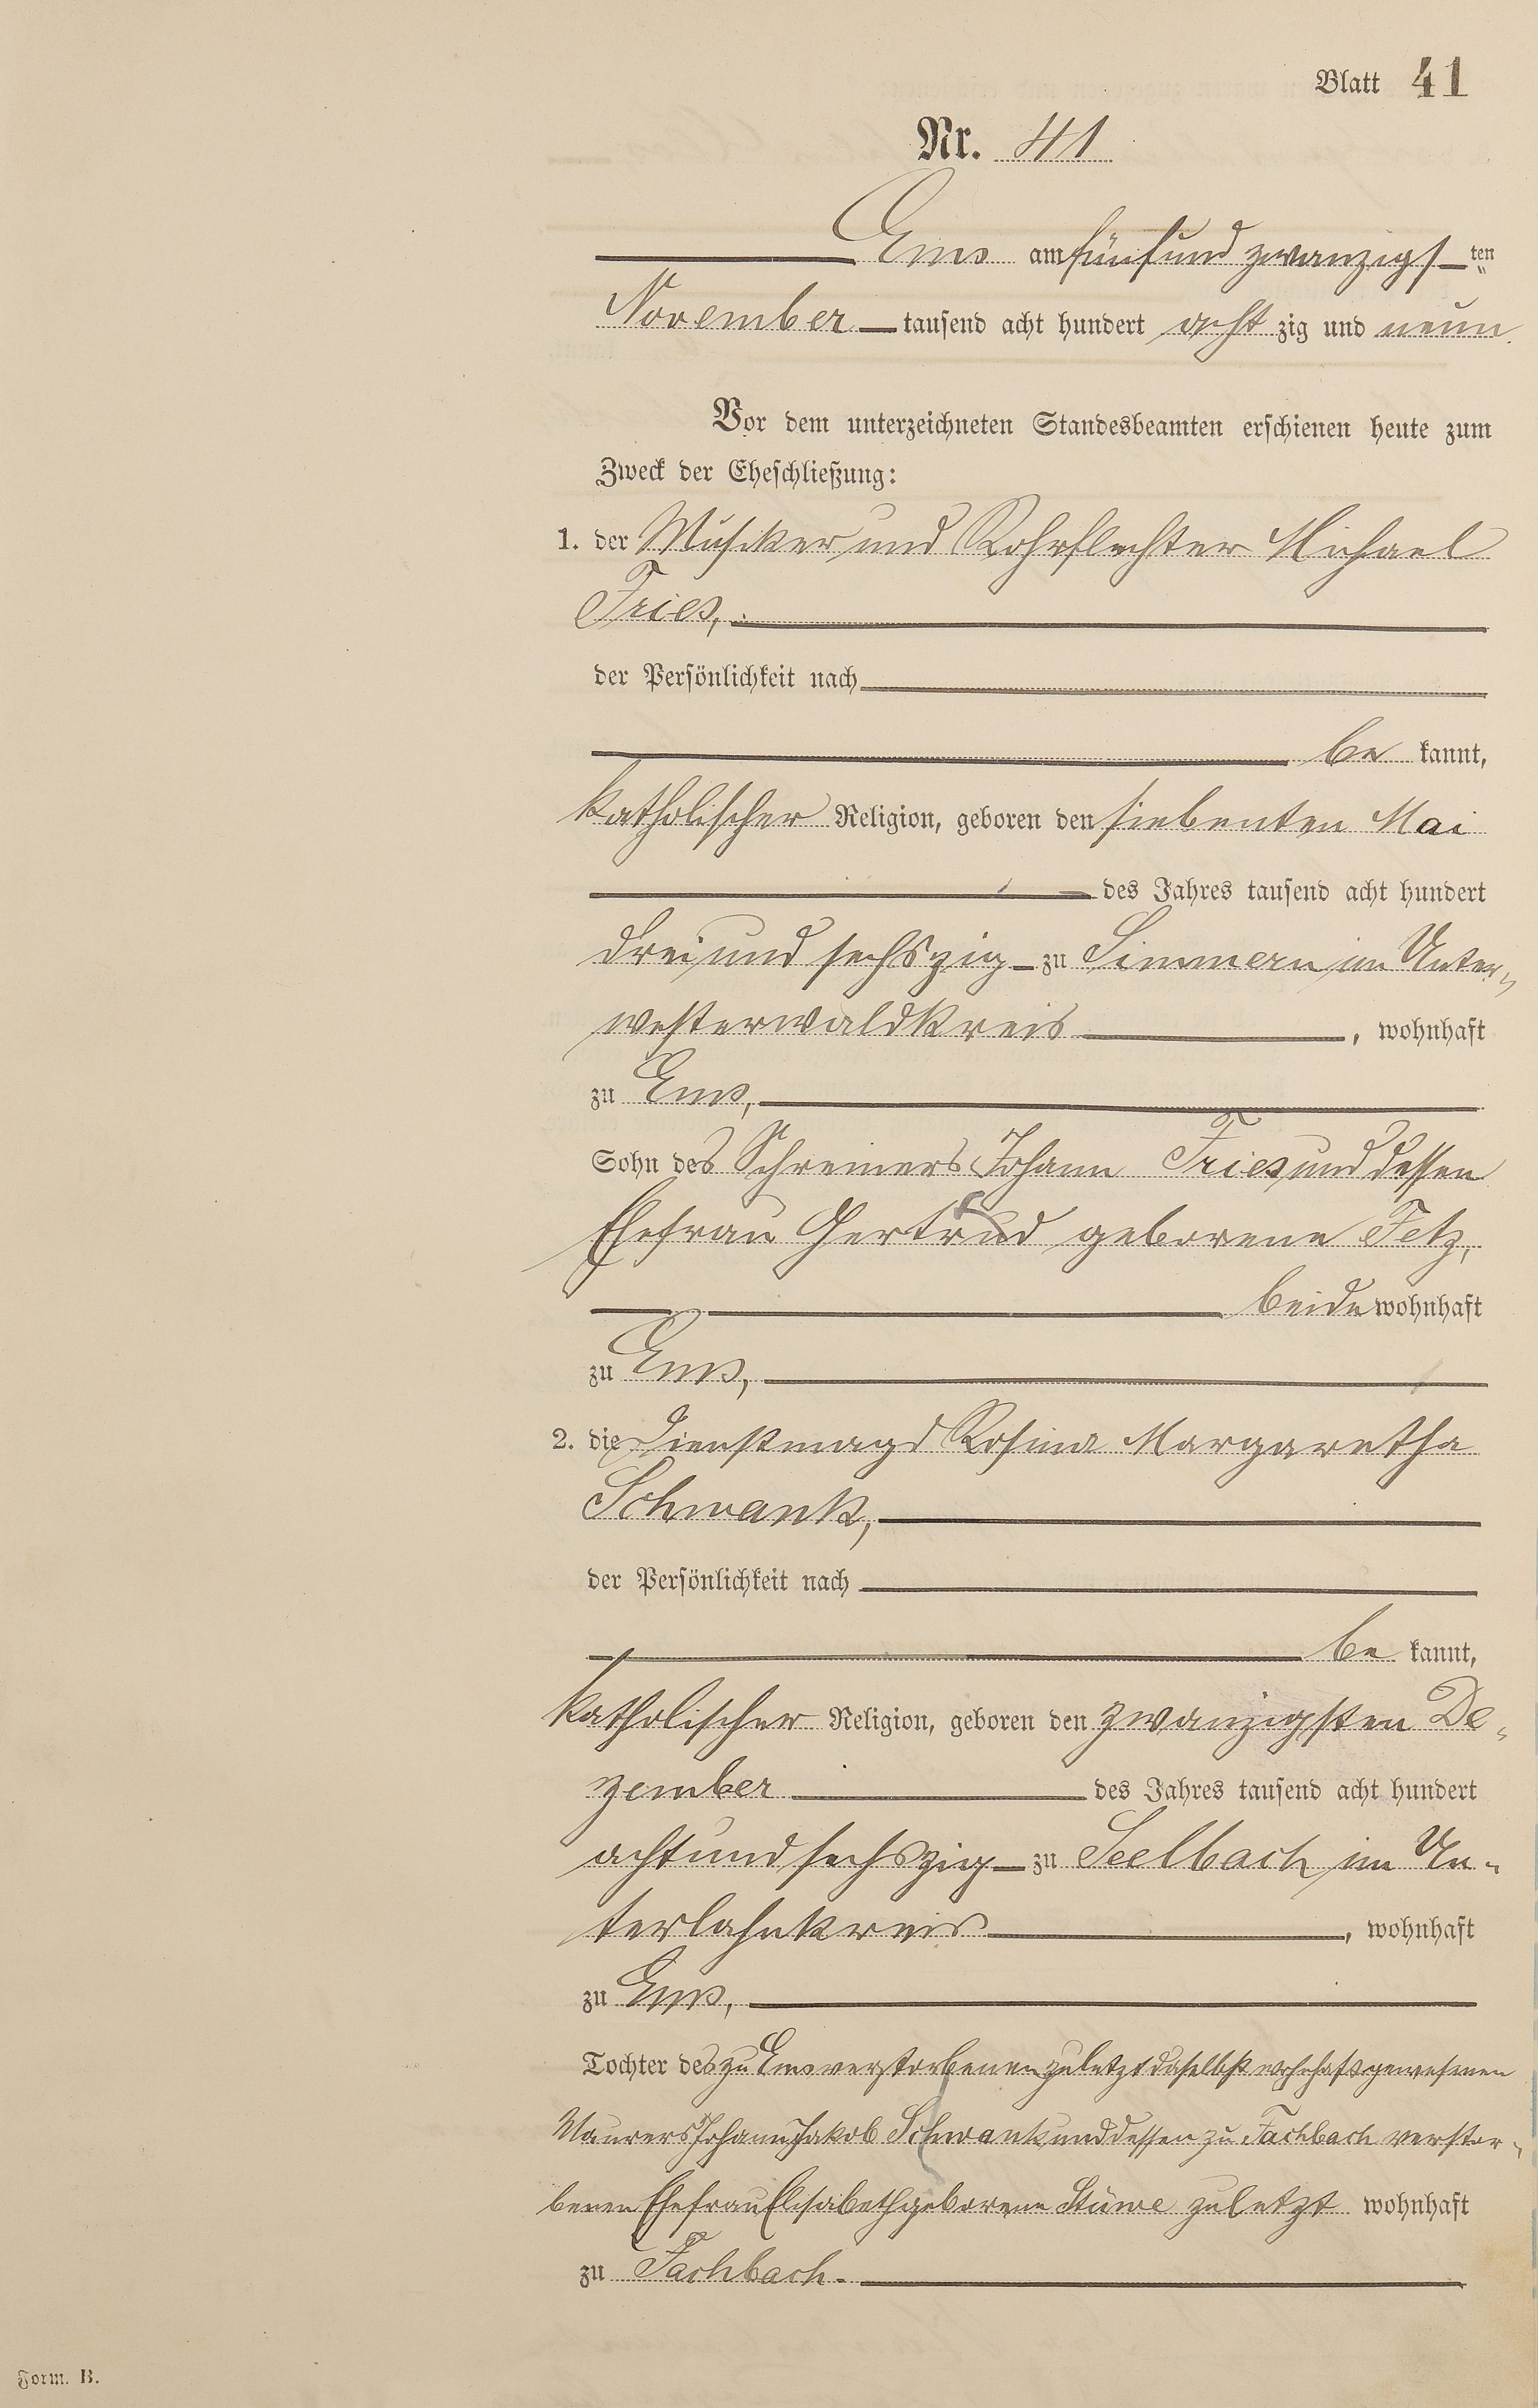 Blatt 41
Nr. 41
Ems am fünfundzwanzigsten
November tausend acht hundert achtzig und neun.
Vor dem unterzeichneten Standesbeamten erschienen heute zum
Zweck der Eheschließung:
1. der Musiker und Rohrflechter Michael
Fries,
der Persönlichkeit nach
bekannt,
katholischer Religion, geboren den siebenten Mai
des Jahres tausend acht hundert
dreiundsechszig zu Simmern im Unter-
westerwaldkreis, wohnhaft
zu Ems,
Sohn des Schreiners Johann Fries und dessen
Ehefrau Gertrud geborene Fetz,
beide wohnhaft
zu Ems,
2. die Dienstmagd Rosina Margaretha
Schwank,
der Persönlichkeit nach
bekannt,
katholischer Religion, geboren den zwanzigsten De-
zember des Jahres tausend acht hundert
achtundsechszig zu Seelbach im Un-
terlahnkreis, wohnhaft
zu Ems,
Tochter des zu Ems verstorbenen zuletzt daselbst wohnhaft gewesenen
Maurers Johann Jakob Schwank und dessen zu Fachbach verstor-
benen Ehefrau Elisabeth geborene Stüwe zuletzt wohnhaft
zu Fachbach.
Form. B.